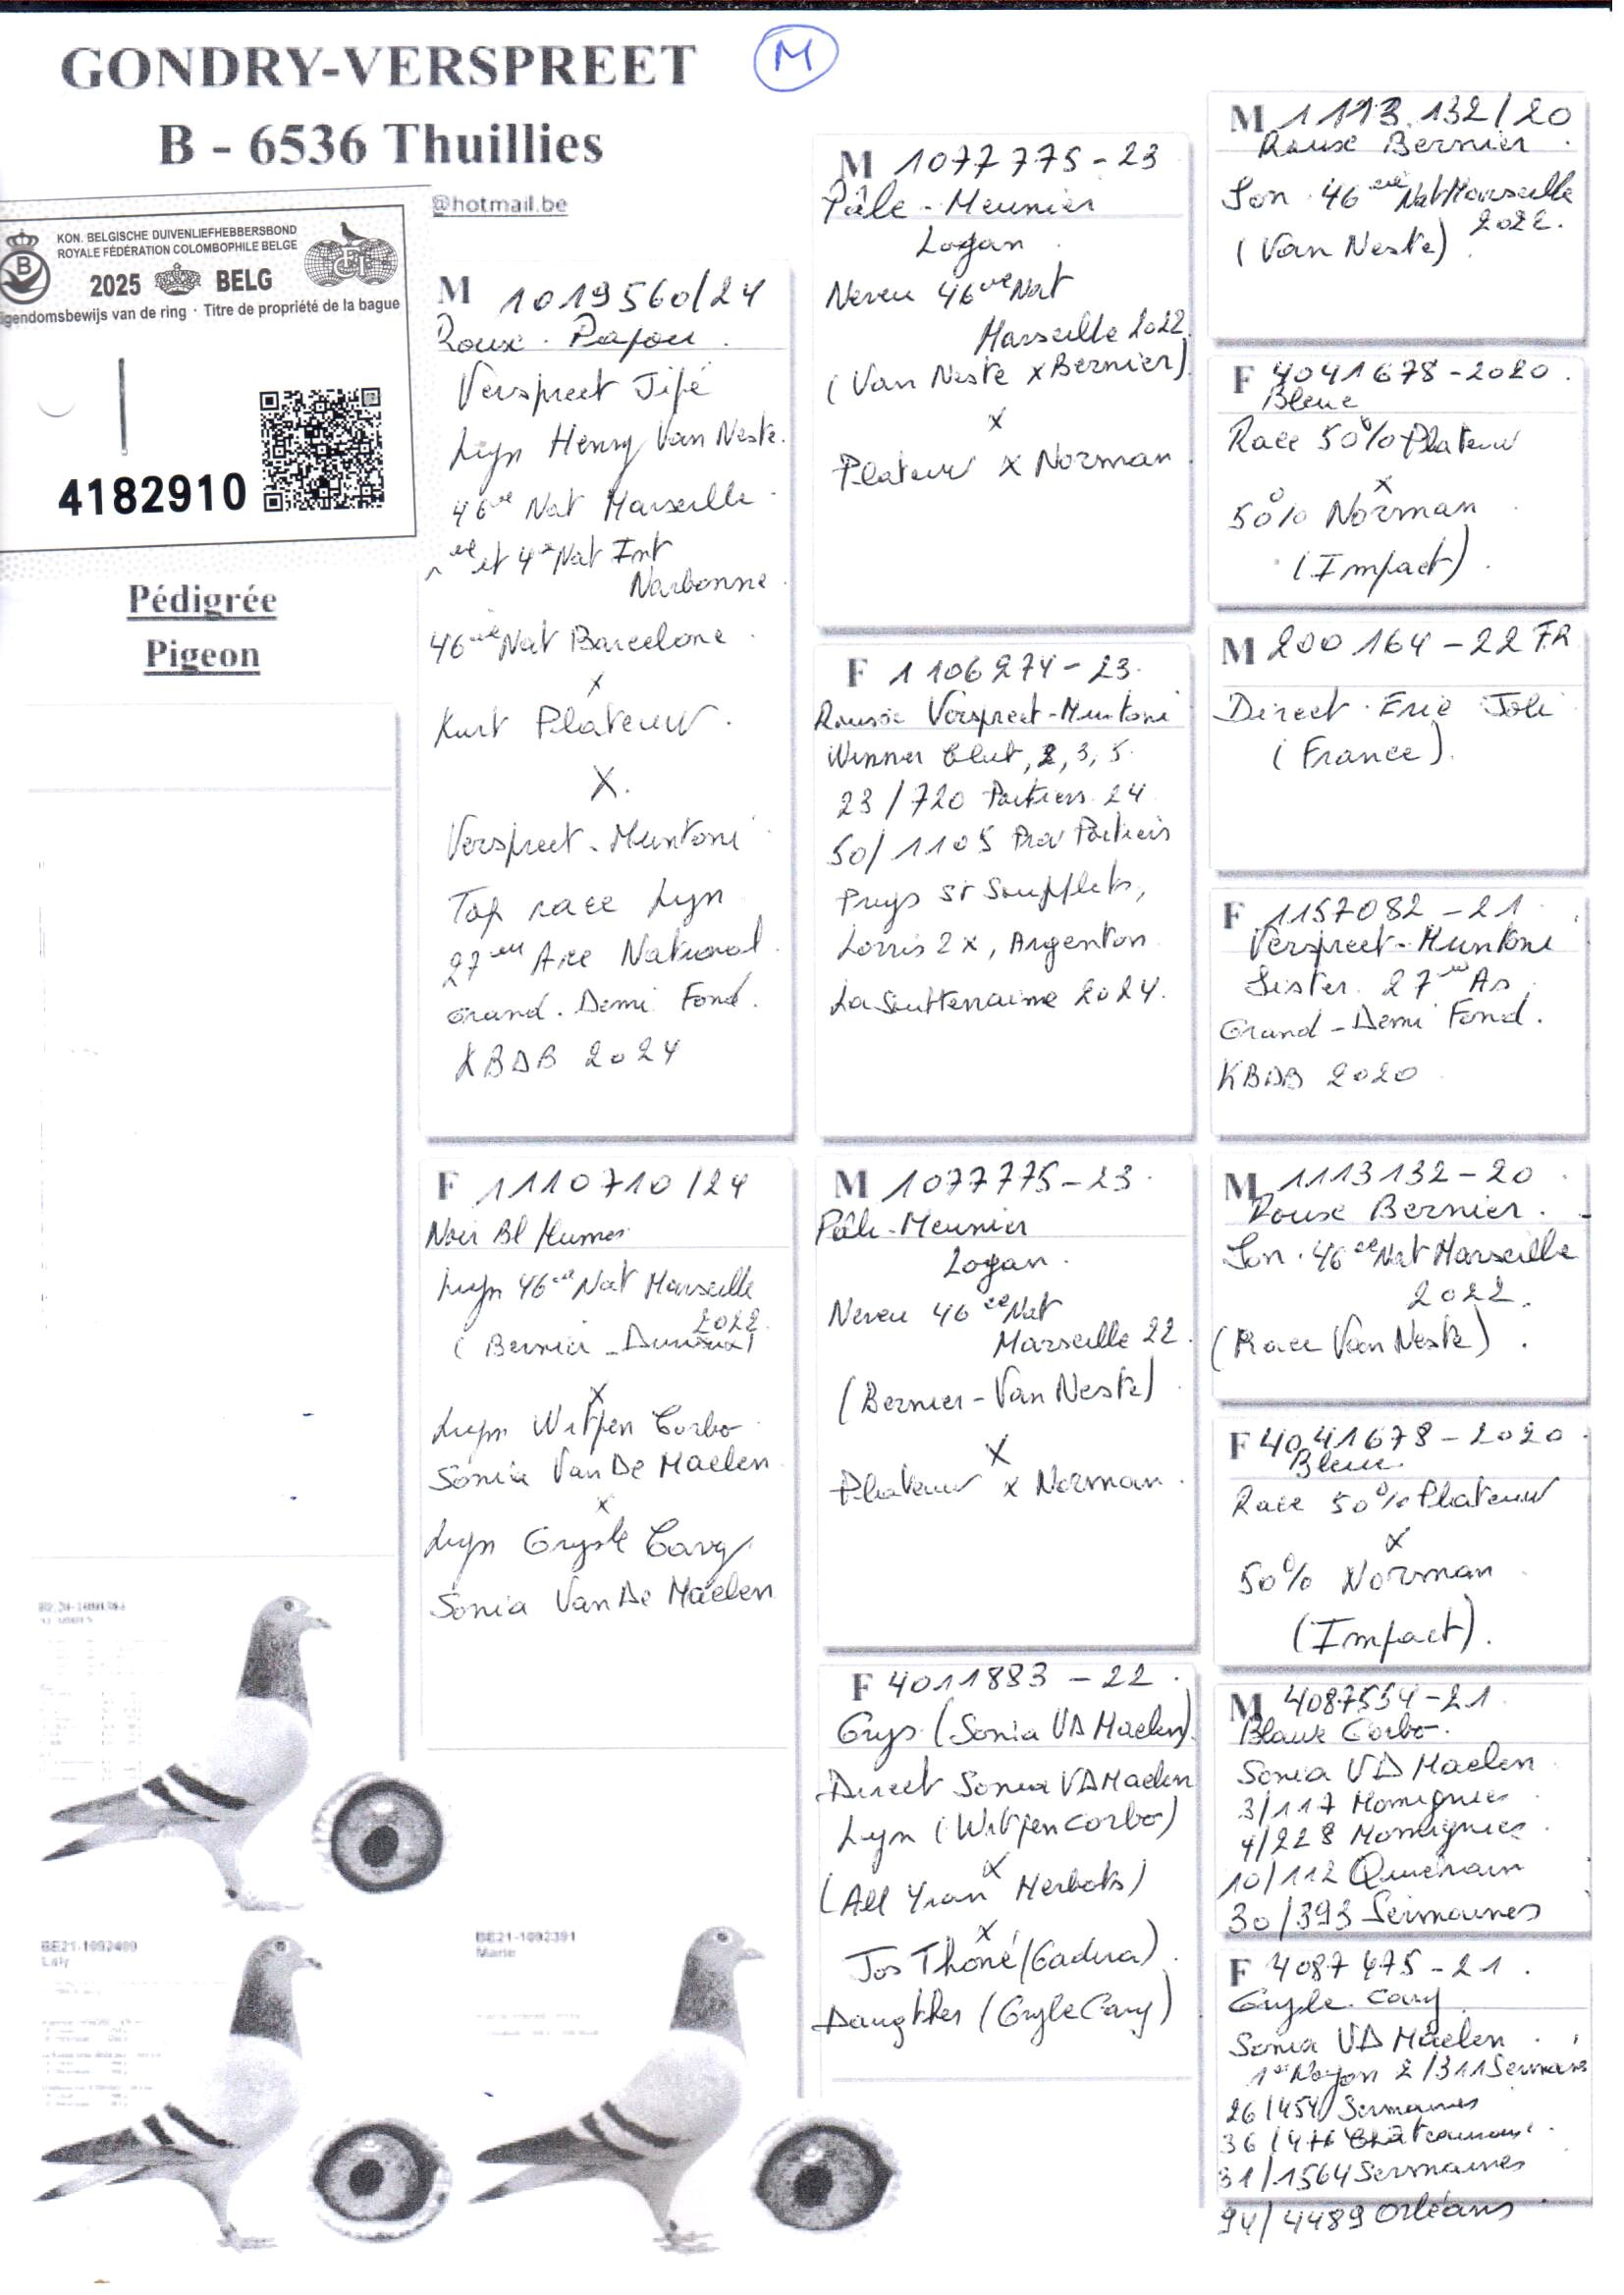 GONDRY-VERSPREET
M
B - 6536 Thuillies
@hotmail.be
KON. BELGISCHE DUIVENLIEFHEBBERSBOND
ROYALE FÉDÉRATION COLOMBOPHILE BELGE
2025 BELG
igendomsbewijs van de ring · Titre de propriété de la bague
4182910
Pédigrée
Pigeon
M 1019560/24
Roux. Papou.
Verspreet Jifé
Lijn Henry Van Neste.
46eme Nat Marseille
et 4e Nat Int
Narbonne
46eme Nat Barcelone
x
Kurt Plateuw.
X.
Verspreet-Muntoni
Top race Lijn
27em Ace National
Grand. Demi Fond.
KBDB 2024
F 1110710/24
Noir Bl Plumes
Lijn 46eme Nat Marseille
2022
(Bernier -
x
Lijn Witpen Corbo
Sonia Van De Maelen
x
Lijn Grysle Cavy
Sonia Van De Maelen
M 1077775-23
Pâle-Meunier
Logan
Neveu 46eme Nat
Marseille 2022
(Van Neste x Bernier)
x
Plateuw x Norman
F 1106274-23.
Rousse Verspreet-Muntoni
Winner Club, 2, 3, 5.
23/720 Poitiers 24
50/1105 Prov Poitiers
Souppelets,
Lorris 2x, Argenton
La Soutteraine 2024.
M 1077775-23
Pâle-Meunier
Logan.
Neveu 46eme Nat
Marseille 22
(Bernier-Van Neste)
X
Plateuw x Norman.
F 4011883-22
Grys (Sonia VD Maelen)
Direct Sonia VD Maelen
Lijn (Witpen Corbo)
x
(All Yvan Herbots)
x
Jos Thoné (Gadua)
Daughther (Grysle Cavy)
M 1113.132/20
Roux Bernier.
Son 46eme Nat Marseille
2022.
(Van Neste)
F 4041678-2020.
Bleue
Race 50% Plateuw
x
50% Norman
(Impact).
M 200164-22 FR
Direct Eric Joli
(France).
F 1157082-21.
Verspreet-Muntoni
Sister 27em As
Grand-Demi Fond.
KBDB 2020
M 1113132-20
Roux Bernier.
Son. 46eme Nat Marseille
2022.
(Race Van Neste).
F 4041678-2020
Bleue.
Race 50% Plateuw
x
50% Norman
(Impact).
M 4087554-21
Blauw Corbo.
Sonia VD Maelen
3/117 Momignies
4/228 Momignies
10/112 Quievrain
30/393 Sermaises
F 4087475-21.
Grysle. Cavy
Sonia VD Maelen
1er Noyon 2/311 Sermaises
26/454 Sermaises
36/476 Châteauroux
31/1564 Sermaises
94/4489 Orléans
BE21-1092409
Laly
BE21-1092391
Marie